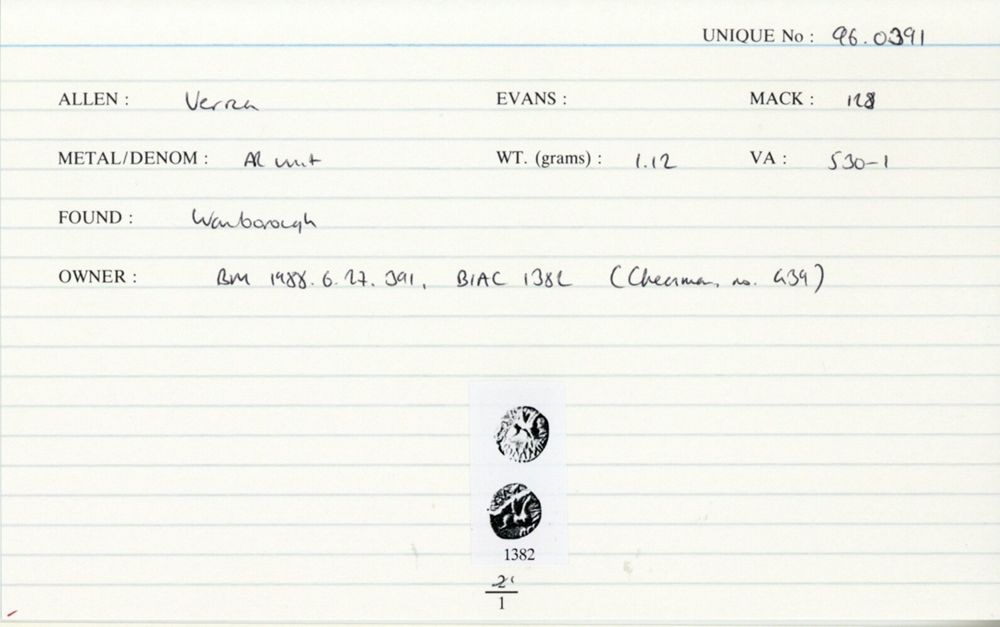 UNIQUE No : 96.0391
ALLEN : Verica EVANS : MACK : 128
METAL/DENOM : AR unit WT. (grams) : 1.12 VA : 530-1
FOUND : Wanborough
OWNER : BM 1988.6.27.391, BIAC 1382 (Cheesman, no. 439)
1382
1